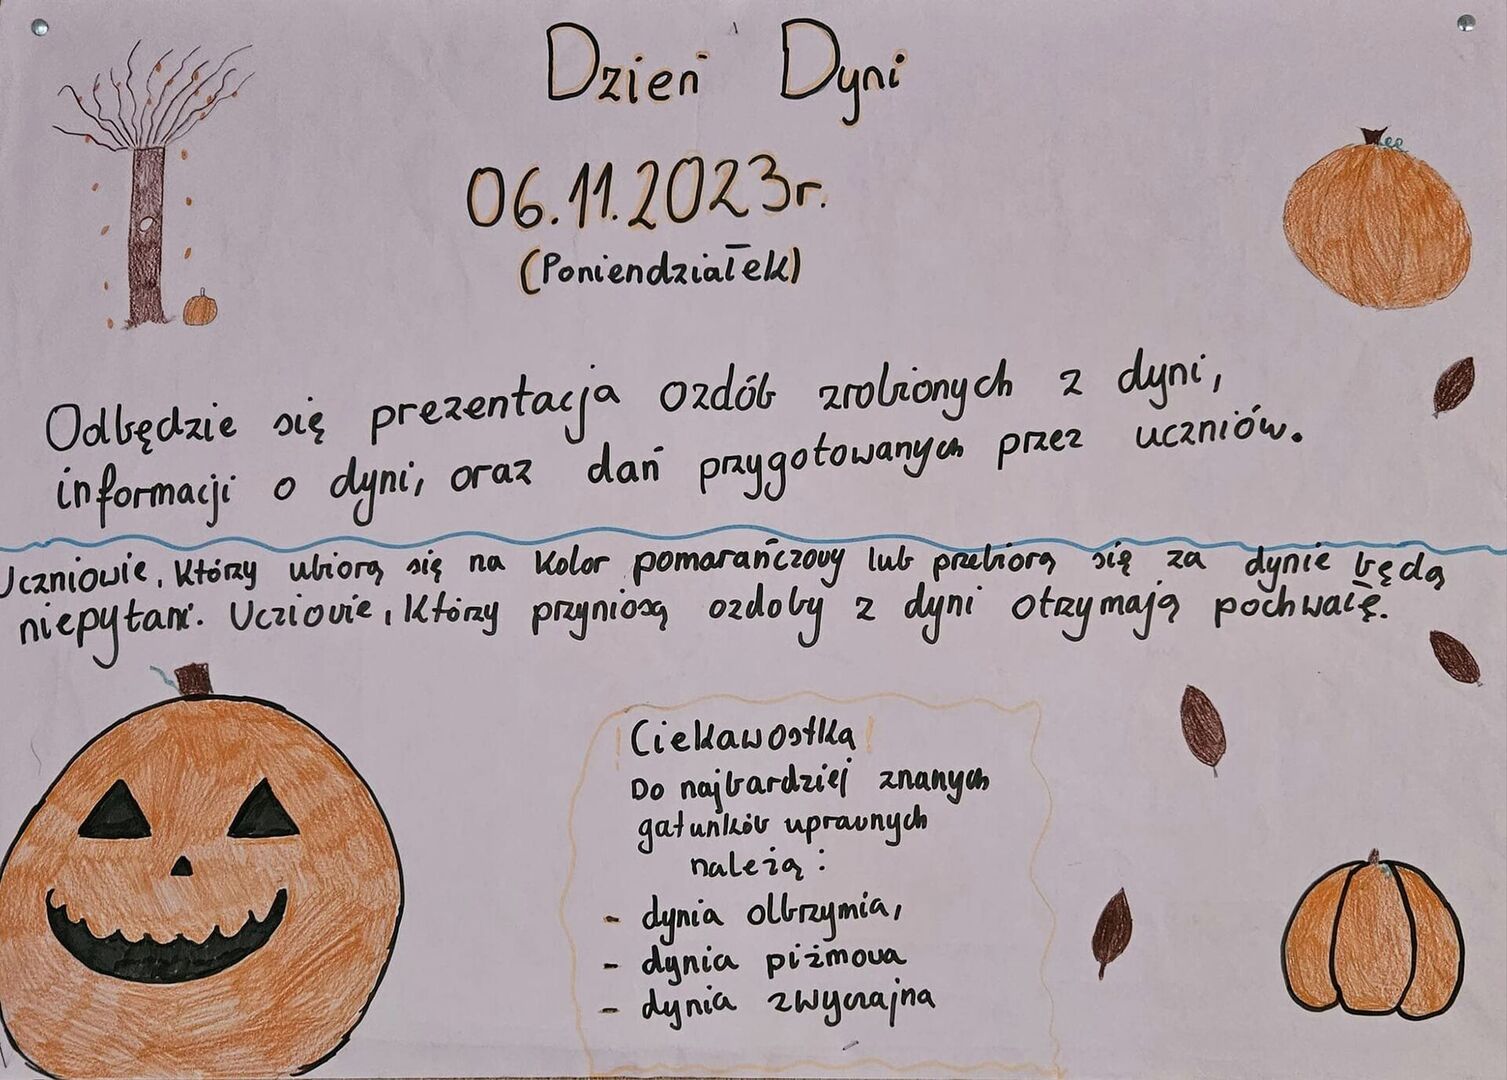 Dzień Dyni
06.11.2023r.
(Poniendziałek)
Odbędzie się prezentacja ozdób zrobionych z dyni,
informacji o dyni, oraz dań przygotowanych przez uczniów.
Uczniowie, którzy ubiorą się na kolor pomarańczowy lub przebiorą się za dynie będą
niepytani. Ucziowie, którzy przyniosą ozdoby z dyni otrzymają pochwałę.
! Ciekawostka !
Do najbardziej znanych
gatunków uprawnych
należą:
- dynia olbrzymia,
- dynia piżmowa
- dynia zwyczajna